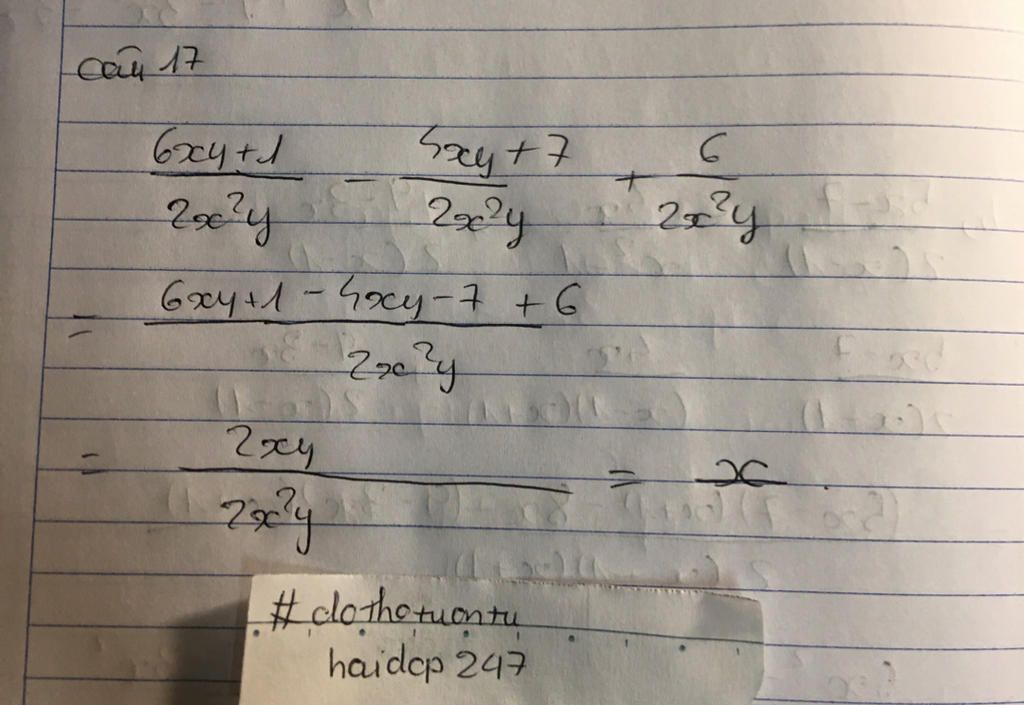 Câu 17
(6xy+1)/(2x²y) - (4xy+7)/(2x²y) + 6/(2x²y)
= (6xy+1-4xy-7+6)/(2x²y)
= (2xy)/(2x²y) = x.
#dothotuontu
haidcp247